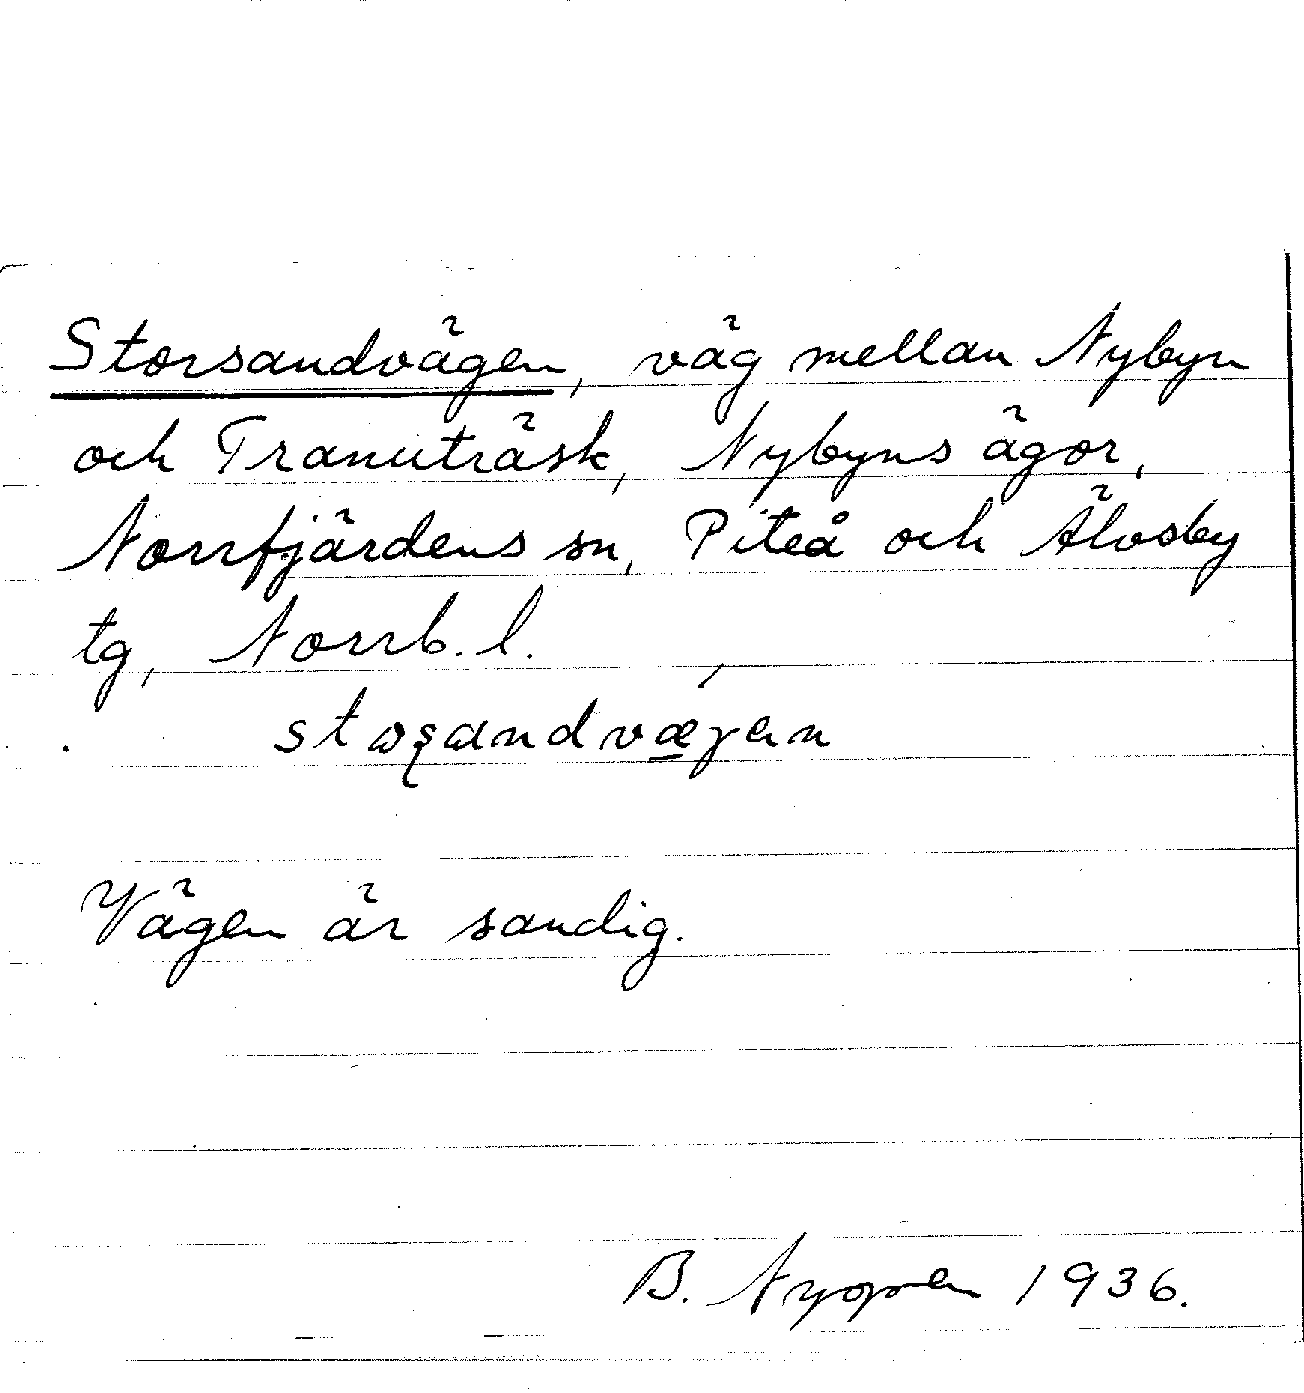 Storsandvägen, väg mellan Nybyn
och Tranuträsk, Nybyns ägor,
Norrfjärdens sn, Piteå och Älvsby
tg, Norrb. l.
Vägen är sandig.
B. 1936.